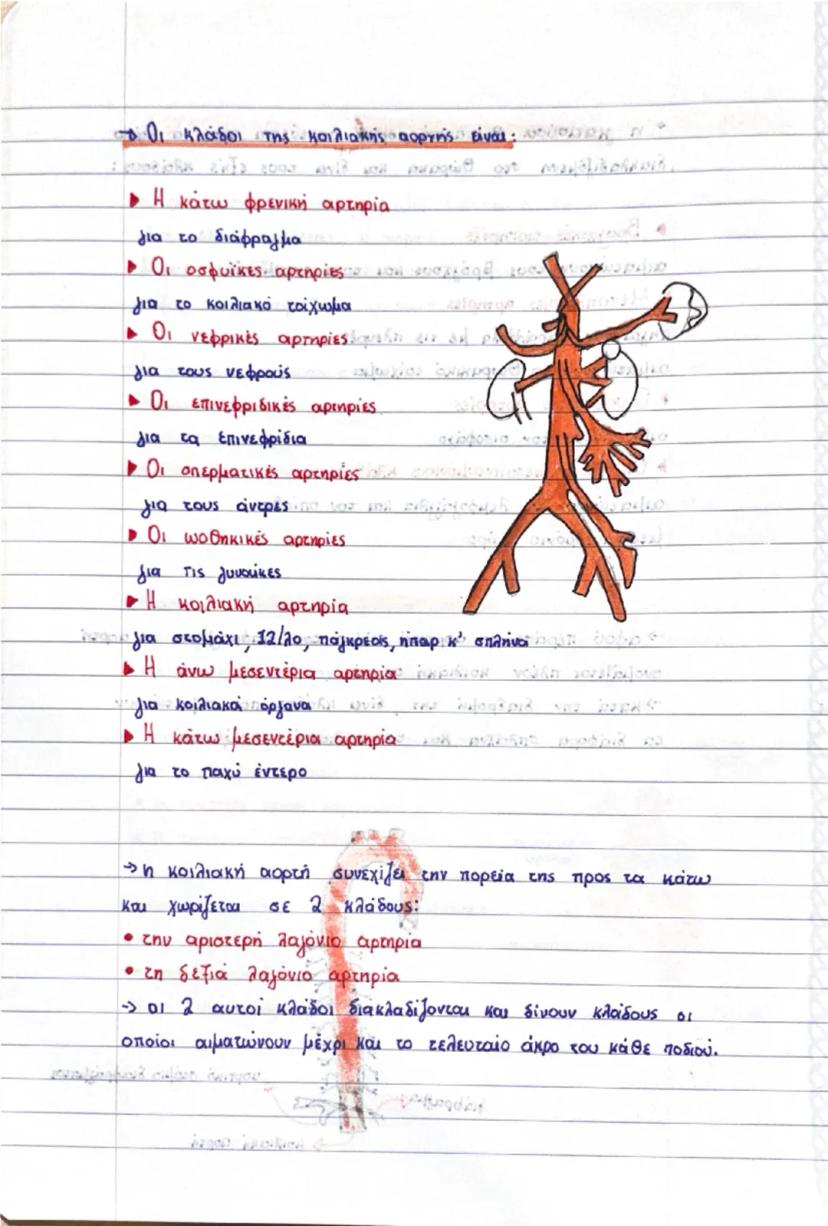 → Οι κλάδοι της κοιλιακής αορτής είναι:
▶ Η κάτω φρενική αρτηρία
για το διάφραγμα
▶ Οι οσφυϊκές αρτηρίες
για το κοιλιακό τοίχωμα
▶ Οι νεφρικές αρτηρίες
για τους νεφρούς
▶ Οι επινεφριδικές αρτηρίες
για τα επινεφρίδια
▶ Οι σπερματικές αρτηρίες
για τους άντρες
▶ Οι ωοθηκικές αρτηρίες
για τις γυναίκες
▶ Η κοιλιακή αρτηρία
για στομάχι, 12/λο, πάγκρεας, ήπαρ κ' σπλήνα
▶ Η άνω μεσεντέρια αρτηρία
για κοιλιακά όργανα
▶ Η κάτω μεσεντέρια αρτηρία
για το παχύ έντερο
→ η κοιλιακή αορτή συνεχίζει την πορεία της προς τα κάτω
και χωρίζεται σε 2 κλάδους:
• την αριστερή λαγόνιο αρτηρία
• τη δεξιά λαγόνιο αρτηρία
→ οι 2 αυτοί κλάδοι διακλαδίζονται και δίνουν κλάδους οι
οποίοι αιματώνουν μέχρι και το τελευταίο άκρο του κάθε ποδιού.